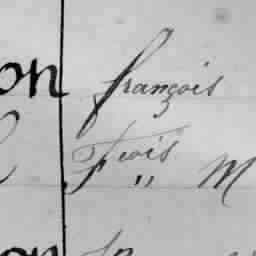 on françois
Fcois " M
on